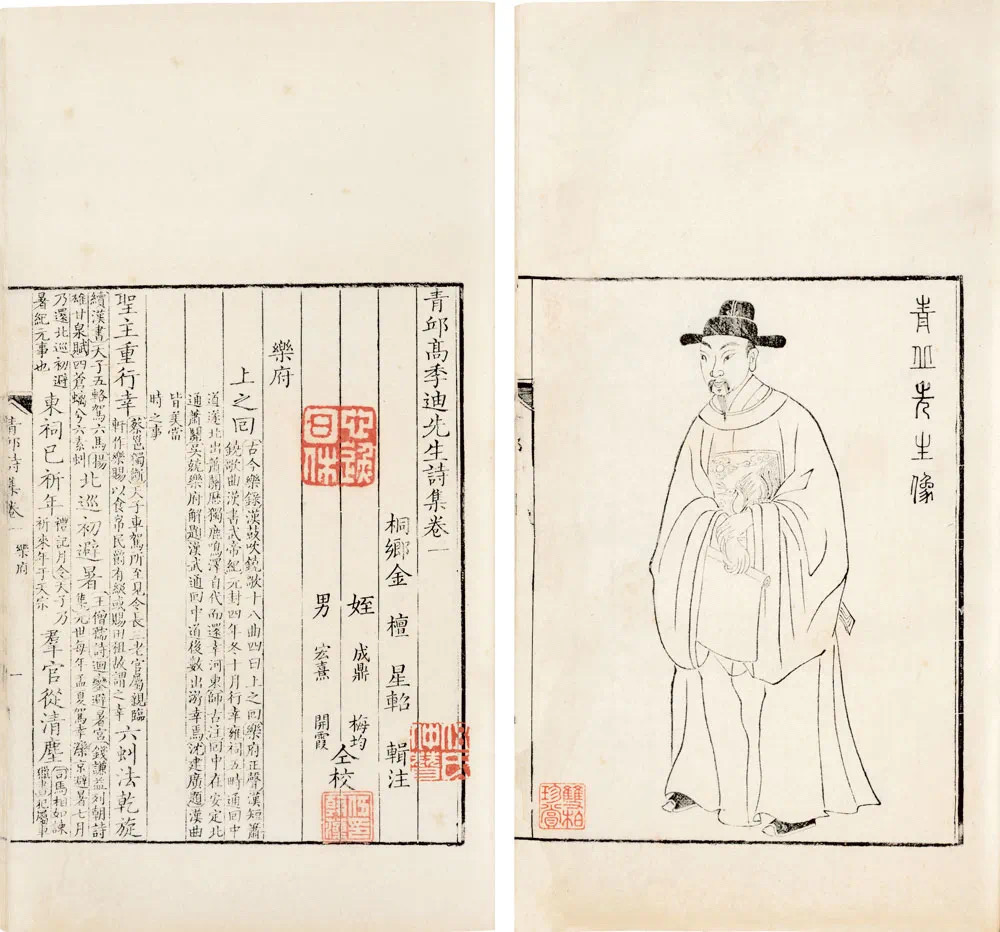 青丘先生像
雙柏
珍賞
青邱高季迪先生詩集卷一
桐鄉金 檀 星軺 輯注
姪 成鼎 梅均
男 宏熹 開霞
仝校
樂府
上之回
古今樂錄漢鼓吹鐃歌十八曲四曰上之回樂府正聲漢短簫
鐃歌曲漢書武帝紀元封四年冬十月行幸雍祠五畤通回中
道遂北出蕭關歷獨鹿鳴澤自代而還幸河東師古注回中在安定北
通蕭關吳兢樂府解題漢武通回中道後數出游幸焉沈建廣題漢曲
皆美當
時之事
聖主重行幸
蔡邕獨斷天子車駕所至見令長三老官屬親臨
軒作樂賜以食帛民爵有級或賜田租故謂之幸
六虯法乾旋
續漢書天子五輅駕六馬揚
雄甘泉賦四蒼螭兮六素虯
北巡初避暑
王僧孺詩迴鑾避暑宮錢謙益列朝詩
集元世每年孟夏駕幸灤京避暑七月
乃還北巡初避
暑紀元事也
東祠已祈年
禮記月令天子乃
祈來年于天宗
羣官從清塵
司馬相如諫
獵書犯屬車
青邱詩集卷一
樂府
一